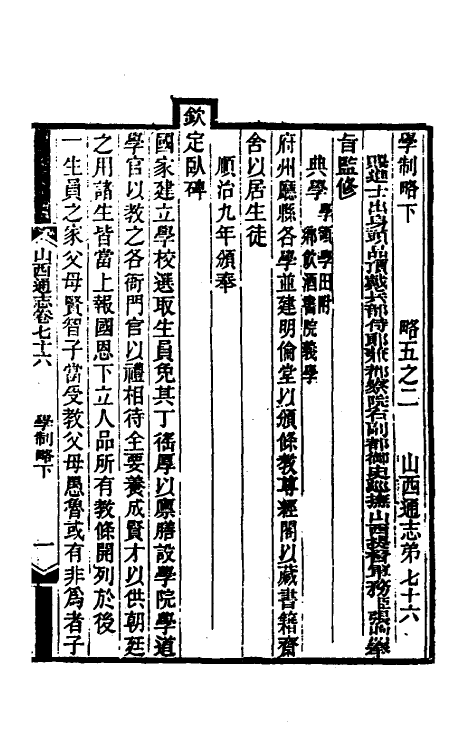 學制略下 略五之二 山西通志第七十六
賜進士出身頭品頂戴兵部侍郎兼都察院右副都御史巡撫山西提督軍務臣張煦奉
旨監修
典學 學額學田附 鄉飲酒書院義學
府州廳縣各學並建明倫堂以頒條教尊經閣以藏書籍齋
舍以居生徒
順治九年頒奉
欽定臥碑
國家建立學校選取生員免其丁徭厚以廩膳設學院學道
學官以教之各衙門官以禮相待全要養成賢才以供朝廷
之用諸生皆當上報國恩下立人品所有教條開列於後
一生員之家父母賢智子當受教父母愚魯或有非為者子
山西通志卷七十六 學制略下 一